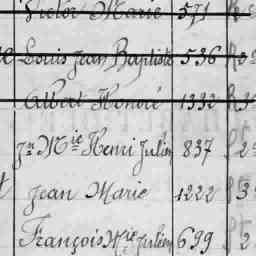 Victor Marie 571
Louis Jean Baptiste 536
Albert Honoré 1332
Jn Mie Henri Julien 837
Jean Marie 1222
François Mie Julien 699